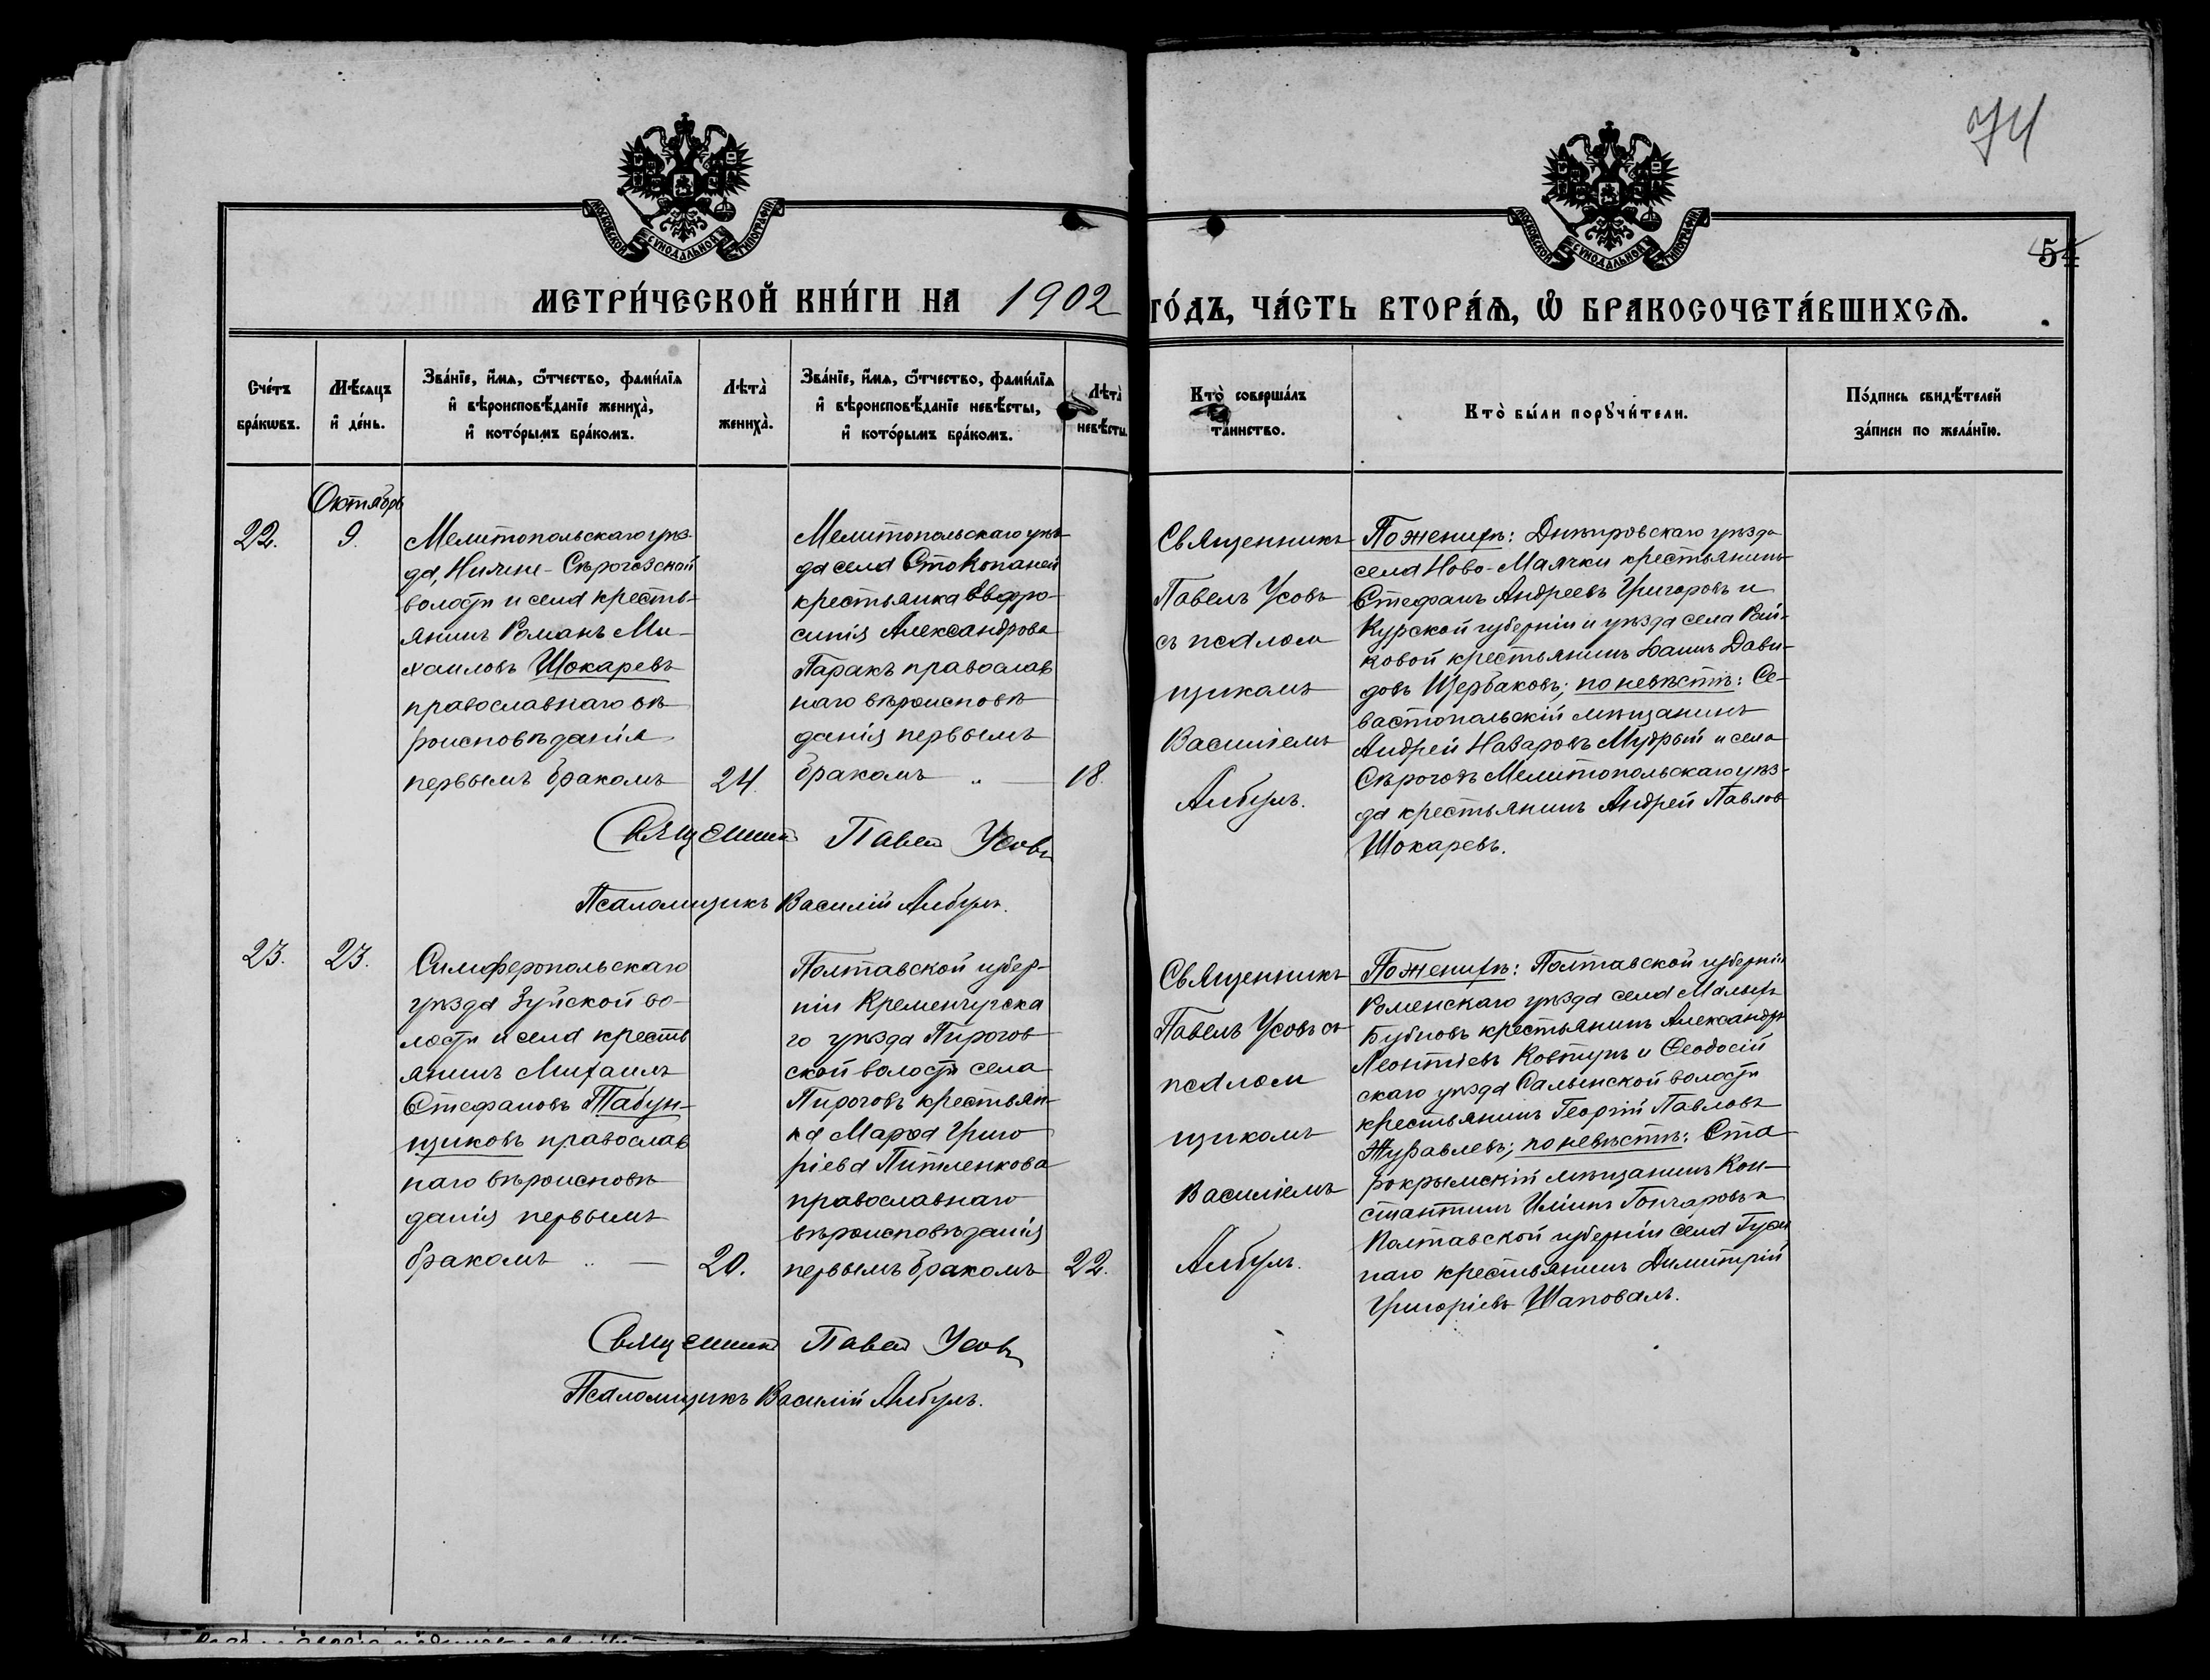 74
МОСКОВСКОЙ СУНОДАЛЬНОЙ ТИПОГРАФІИ
МОСКОВСКОЙ СУНОДАЛЬНОЙ ТИПОГРАФІИ
54
МЕТРИ́ЧЕСКОЙ КНИ́ГИ НА 1902 ГО́ДЪ, ЧА́СТЬ ВТОРА́Ѧ, Ѽ БРАКОСОЧЕТА́ВШИХСѦ.
Сче́тъ бра́кѡвъ.
Мѣ́сяцъ и҆ де́нь.
Зва́нїе, и҆́мѧ, ѻ҆́тчество, фами́лїѧ и҆ вѣроисповѣ́данїе жениха̀, и҆ кото́рымъ бра́комъ.
Лѣта̀ жениха̀.
Зва́нїе, и҆́мѧ, ѻ҆́тчество, фами́лїѧ и҆ вѣроисповѣ́данїе невѣ́сты, и҆ кото́рымъ бра́комъ.
Лѣта̀ невѣ́сты.
Кто̀ соверша́лъ та́инство.
Кто̀ бы́ли порꙋчи́тели.
По́дпись свидѣ́телей за́писи по жела́нїю.
22.
Октябрь
9.
Мелитопольскаго уѣз-
да, Нижне-Сѣрогозской
волости и села кресть-
янинъ Романъ Ми-
хаиловъ Шокаревъ
православнаго вѣ
роисповѣданія
первымъ бракомъ
24.
Мелитопольскаго уѣз-
да села Стокопаней
крестьянка Евфро-
синія Александрова
Таракъ православ
наго вѣроисповѣ
данія первымъ
бракомъ „ —
18.
Священникъ
Павелъ Усовъ
съ псалом
щикомъ
Василіемъ
Албулъ.
По женихѣ: Днѣпровскаго уѣзда
села Ново-Маячки крестьянинъ
Стефанъ Андреевъ Григоровъ и
Курской губерніи и уѣзда села Рай-
ковой крестьянинъ Іоаннъ Дави-
довъ Щербаковъ; по невѣстѣ: Се-
вастопольскій мѣщанинъ
Андрей Назаровъ Мудрый и села
Сѣрогозъ Мелитопольскаго уѣз-
да крестьянинъ Андрей Павлов
Шокаревъ.
Священникъ Павелъ Усовъ
Псаломщикъ Василій Албулъ.
23.
23.
Симферопольскаго
уѣзда Зуйской во-
лости и села кресть
янинъ Михаилъ
Стефановъ Табун-
щиковъ православ
наго вѣроисповѣ
данія первымъ
бракомъ „ —
20.
Полтавской губер-
ніи Кременчугска
го уѣзда Пирогов
ской волости села
Пироговъ крестьян-
ка Марѳа Григо
ріева Питленкова
православнаго
вѣроисповѣданія
первымъ бракомъ
22.
Священникъ
Павелъ Усовъ съ
псалом
щикомъ
Василіемъ
Албулъ.
По женихѣ: Полтавской губерніи
Роменскаго уѣзда села Малыхъ
Бубновъ крестьянинъ Александръ
Леонтіевъ Ковтунъ и Ѳеодосій
скаго уѣзда Салынской волости
крестьянинъ Георгій Павловъ
Журавлевъ; по невѣстѣ: Ста
рокрымскій мѣщанинъ Кон-
стантинъ Иліинъ Гончаровъ и
Полтавской губерніи села
наго крестьянинъ Димитрій
Григоріевъ Шаповалъ.
Священникъ Павелъ Усовъ
Псаломщикъ Василій Албулъ.